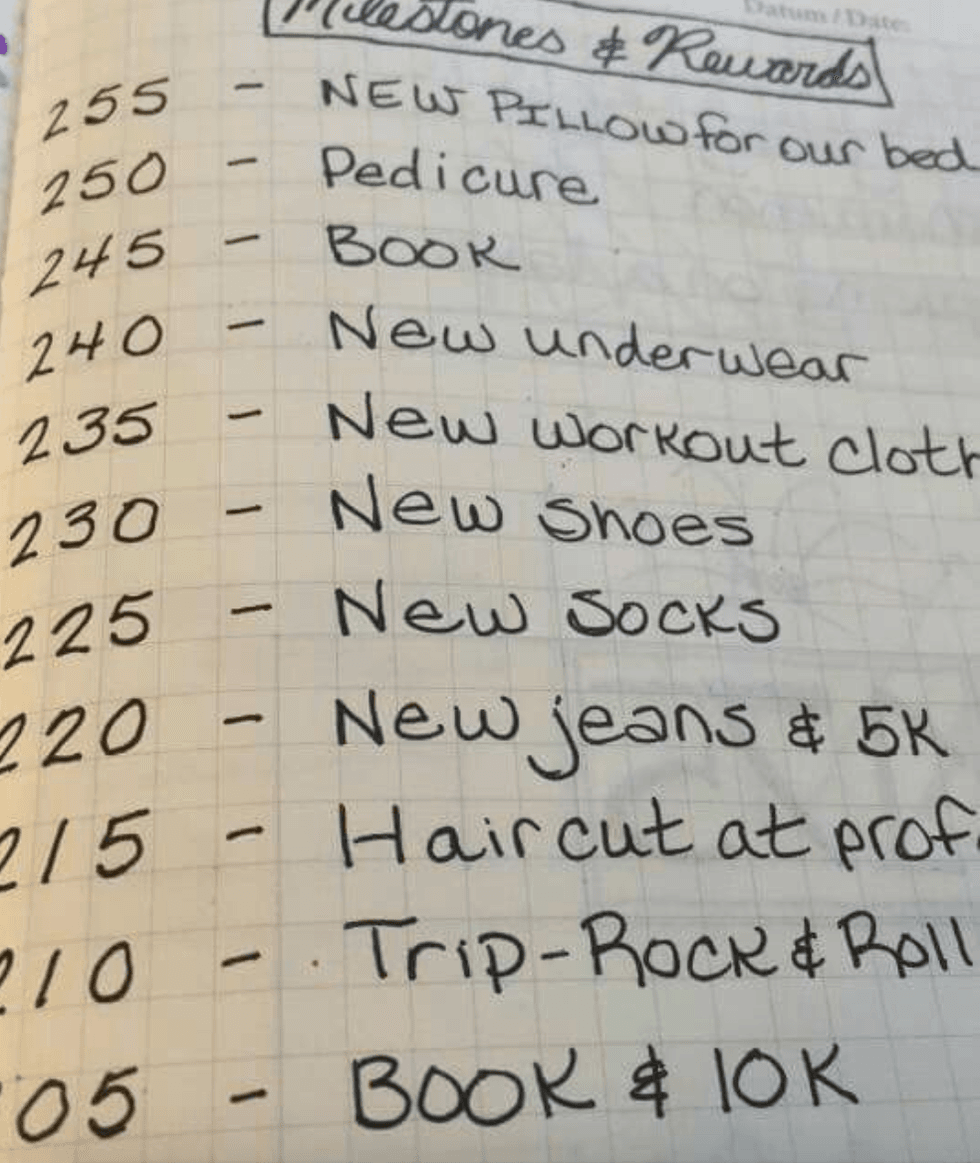 Datum / Date:
Milestones & Rewards
255 - NEW PILLOW for our bed
250 - Pedicure
245 - BOOK
240 - New underwear
235 - New workout cloth
230 - New shoes
225 - New socks
220 - New jeans & 5K
215 - Haircut at prof.
210 - Trip-Rock & Roll
05 - BOOK & 10K